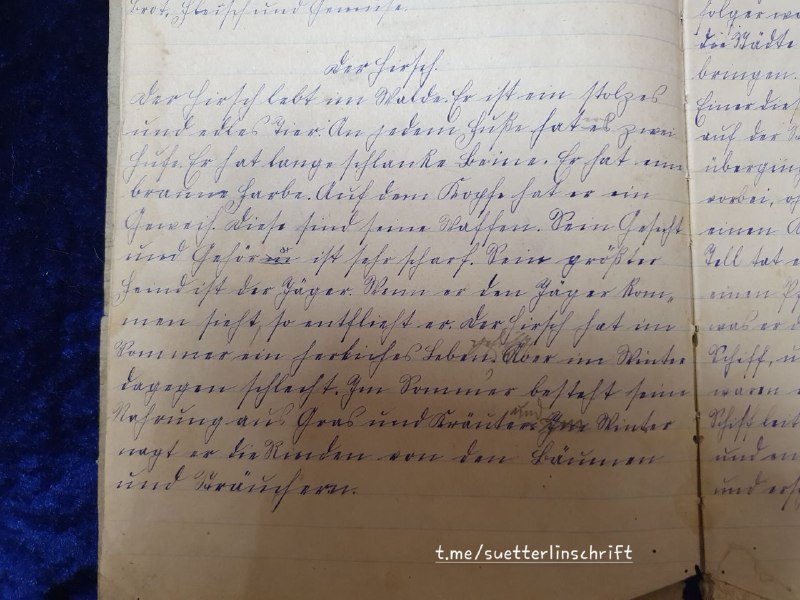 Brot, Fleisch und Gemüse.
Der Hirsch.
Der Hirsch lebt im Walde. Er ist ein stolzes
und edles Tier. An jedem Fuße hat er zwei
Hufe. Er hat lange schlanke Beine. Er hat eine
braune Farbe. Auf dem Kopfe hat er ein
Geweih. Diese sind seine Waffen. Sein Gesicht
und Gehör ist sehr scharf. Sein größter
Feind ist der Jäger. Wenn er den Jäger kom-
men sieht, so entflieht er. Der Hirsch hat im
Sommer ein herliches Leben. Aber im Winter
dagegen schlecht. Im Sommer besteht seine
Nahrung aus Gras und Kräuter und Winter
nagt er die Rinden von den Bäumen
und Sträuchern.
folger
die Städte
bringen.
Einer die
auf der
überging
vorbei,
einen
Tell tat
einen
was er
Schiff,
waren
Schiff
und
und
t.me/suetterlinschrift